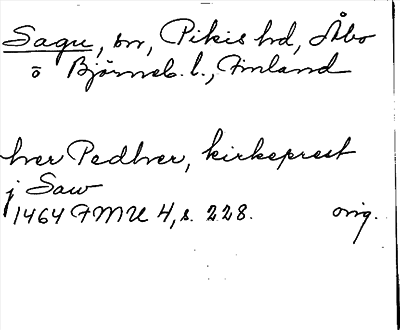 Sagu, sn, Pikis hd, Åbo
o Björneb. l., Finland
her Pedher, kirkeprest
j Saw
1464 FMU 4, s. 228. orig.